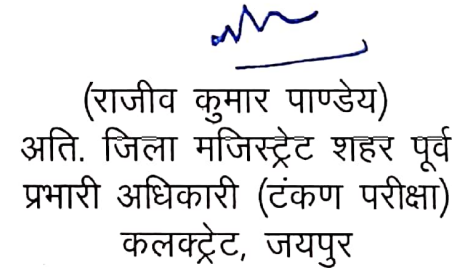 (राजीव कुमार पाण्डेय)
अति. जिला मजिस्ट्रेट शहर पूर्व
प्रभारी अधिकारी (टंकण परीक्षा)
कलक्ट्रेट, जयपुर